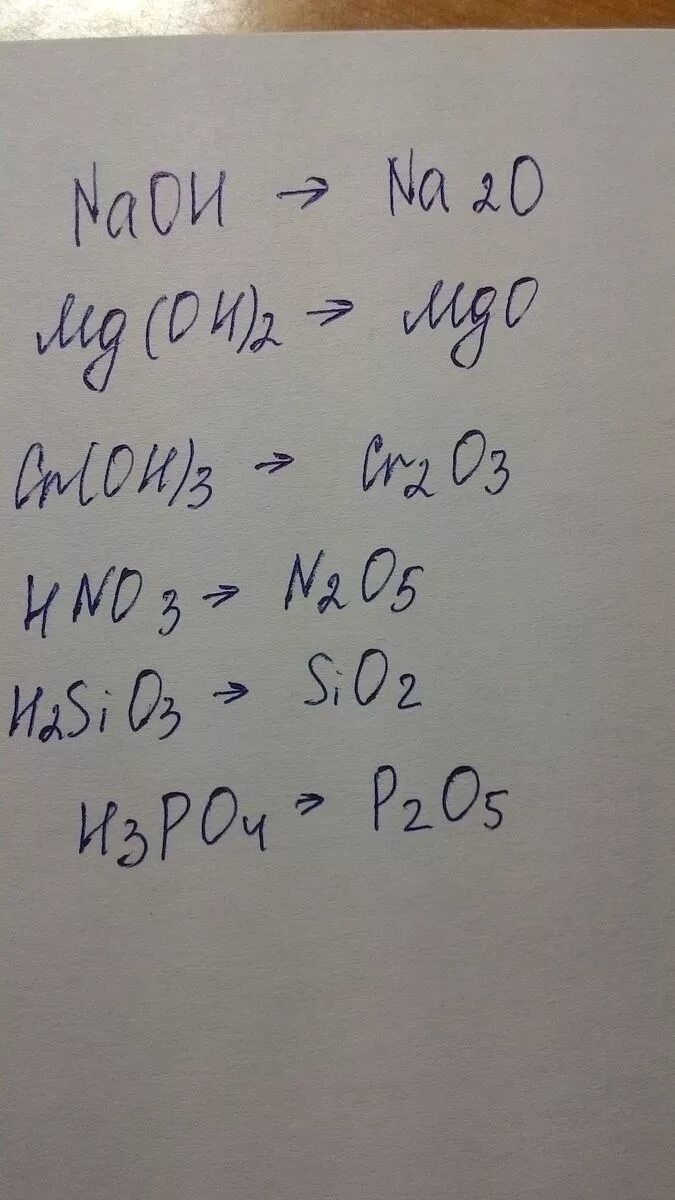 NaOH → Na2O
Mg(OH)2 → MgO
Cr(OH)3 → Cr2O3
HNO3 → N2O5
H2SiO3 → SiO2
H3PO4 → P2O5